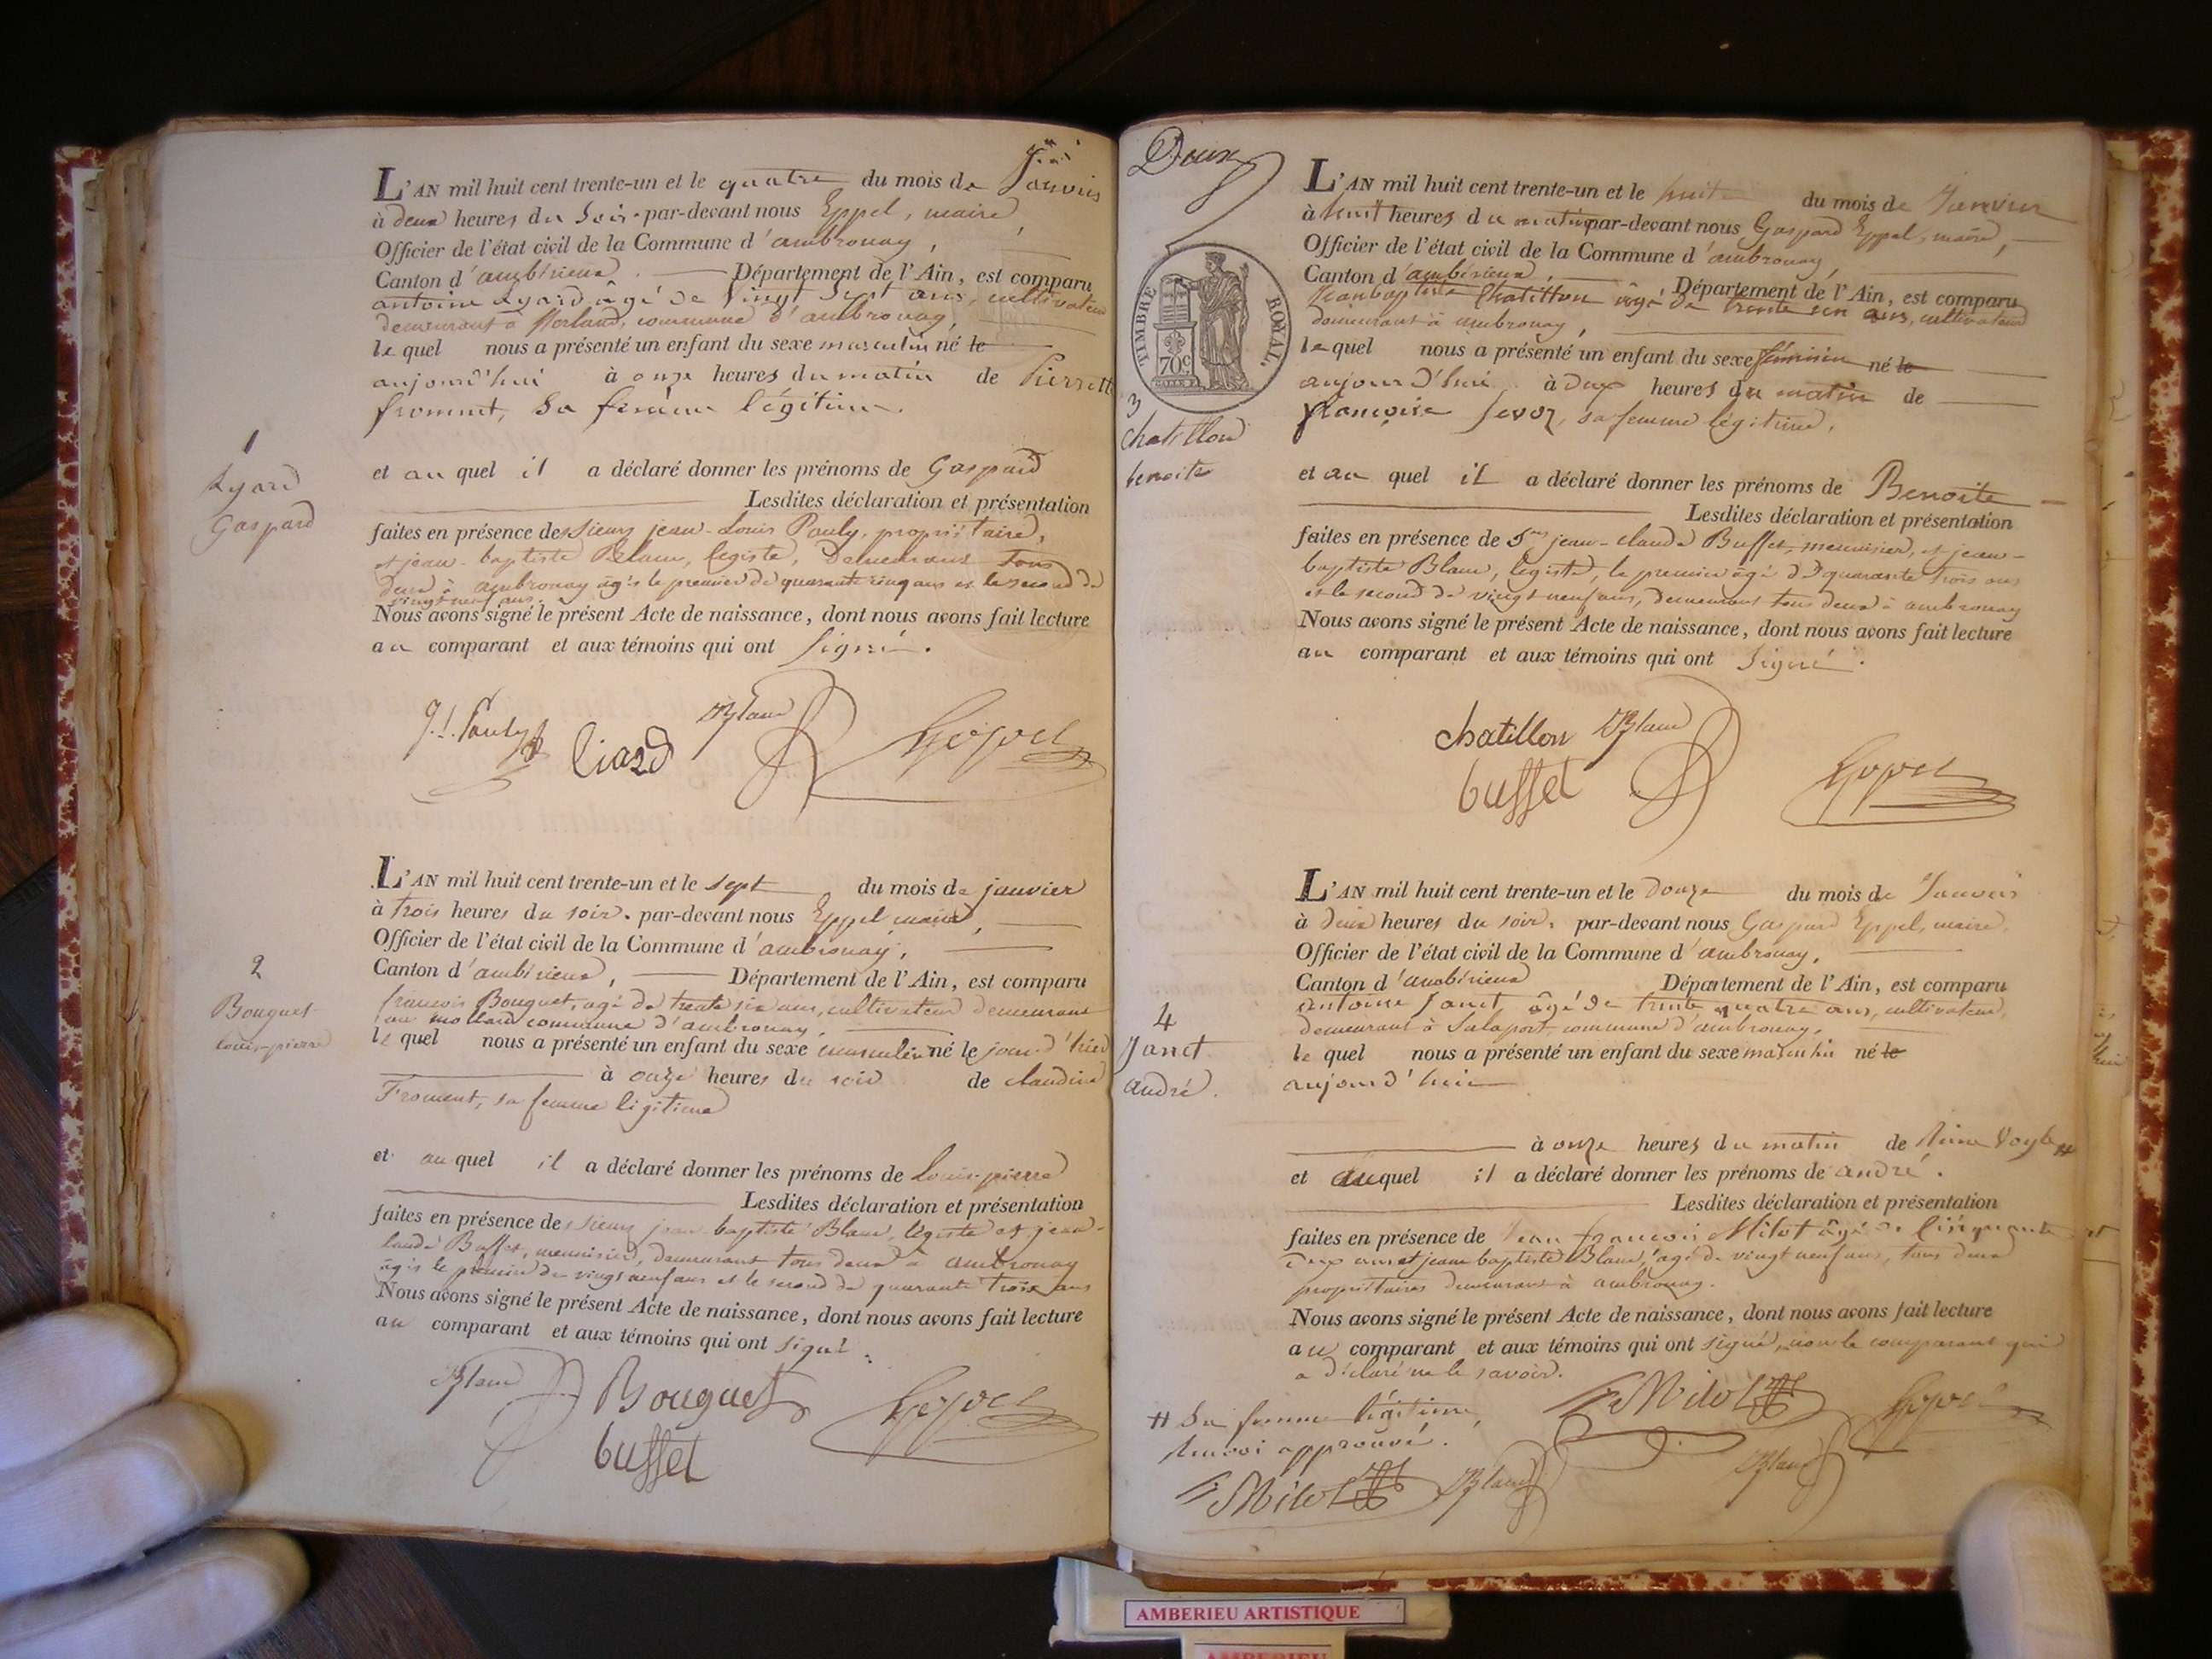 L'AN mil huit cent trente-un et le quatre du mois de Janvier
à deux heures du soir par-devant nous Eppel, maire,
Officier de l'état civil de la Commune d'ambronay,
Canton d'ambérieux. Département de l'Ain, est comparu
antoine Ayard âgé de vingt sept ans, cultivateur
demeurant à Merland, commune d'ambronay,
lequel nous a présenté un enfant du sexe masculin né le
aujourd'hui à onze heures du matin de Pierrette
froment, sa femme légitime.
1
Ayard
Gaspard
et auquel il a déclaré donner les prénoms de Gaspard
Lesdites déclaration et présentation
faites en présence des sieurs jean-Louis Pauly, propriétaire,
et jean-baptiste Blanc, légiste, demeurant tous
deux à ambronay âgés le premier de quarante cinq ans et le second de
vingt neuf ans.
Nous avons signé le présent Acte de naissance, dont nous avons fait lecture
au comparant et aux témoins qui ont signé.
J. L. Pauly Liard Blanc Eppel
L'AN mil huit cent trente-un et le sept du mois de janvier
à trois heures du soir. par-devant nous Eppel maire,
Officier de l'état civil de la Commune d'ambronay,
Canton d'ambérieux, Département de l'Ain, est comparu
françois Bouguet, agé de trente six ans, cultivateur demeurant
au mollard commune d'ambronay.
2
Bouguet
louis-pierre
lequel nous a présenté un enfant du sexe masculin né le jour d'hier
à onze heures du soir de claudine
Froment, sa femme légitime
et auquel il a déclaré donner les prénoms de Louis-pierre
Lesdites déclaration et présentation
faites en présence des sieurs jean-baptiste Blanc, légiste et jean-
claude Buffet, menuisier, demeurant tous deux à ambronay
agés le premier de vingt neuf ans et le second de quarante trois ans
Nous avons signé le présent Acte de naissance, dont nous avons fait lecture
au comparant et aux témoins qui ont signé.
Blanc Bouguet Eppel
buffet
Deux
L'AN mil huit cent trente-un et le huit du mois de Janvier
à huit heures du matin par-devant nous Gaspard Eppel, maire,
Officier de l'état civil de la Commune d'ambronay,
Canton d'ambérieux, Département de l'Ain, est comparu
Jean baptiste Chatillon âgé de trente un ans, cultivateur
demeurant à ambronay,
TIMBRE ROYAL
70c
lequel nous a présenté un enfant du sexe féminin né le
aujourd'hui à deux heures du matin de
françoise Jevoz, sa femme légitime,
3
Chatillon
benoite
et au quel il a déclaré donner les prénoms de Benoite
Lesdites déclaration et présentation
faites en présence de Srs jean-claude Buffet, menuisier, et jean-
baptiste Blanc, légiste, le premier âgé de quarante trois ans
et le second de vingt neuf ans, demeurant tous deux à ambronay
Nous avons signé le présent Acte de naissance, dont nous avons fait lecture
au comparant et aux témoins qui ont signé.
chatillon Blanc
buffet Eppel
L'AN mil huit cent trente-un et le douze du mois de Janvier
à deux heures du soir. par-devant nous Gaspard Eppel, maire,
Officier de l'état civil de la Commune d'ambronay,
Canton d'ambérieux Département de l'Ain, est comparu
antoine Janet âgé de trente quatre ans, cultivateur,
demeurant à Salaport, commune d'ambronay.
4
Janet
andré.
lequel nous a présenté un enfant du sexe masculin né le
aujourd'hui
à onze heures du matin de
et auquel il a déclaré donner les prénoms de andré.
Lesdites déclaration et présentation
faites en présence de Jean françois Milot âgé de cinquante
deux ans et jean baptiste Blanc, agé de vingt neuf ans, tous deux
propriétaires demeurant à ambronay.
Nous avons signé le présent Acte de naissance, dont nous avons fait lecture
au comparant et aux témoins qui ont signé, non le comparant qui
a déclaré ne le savoir.
# Sa femme légitime,
Renvoi approuvé.
F Milot Eppel
F Milot Blanc Blanc
AMBERIEU ARTISTIQUE
AMBERIEU